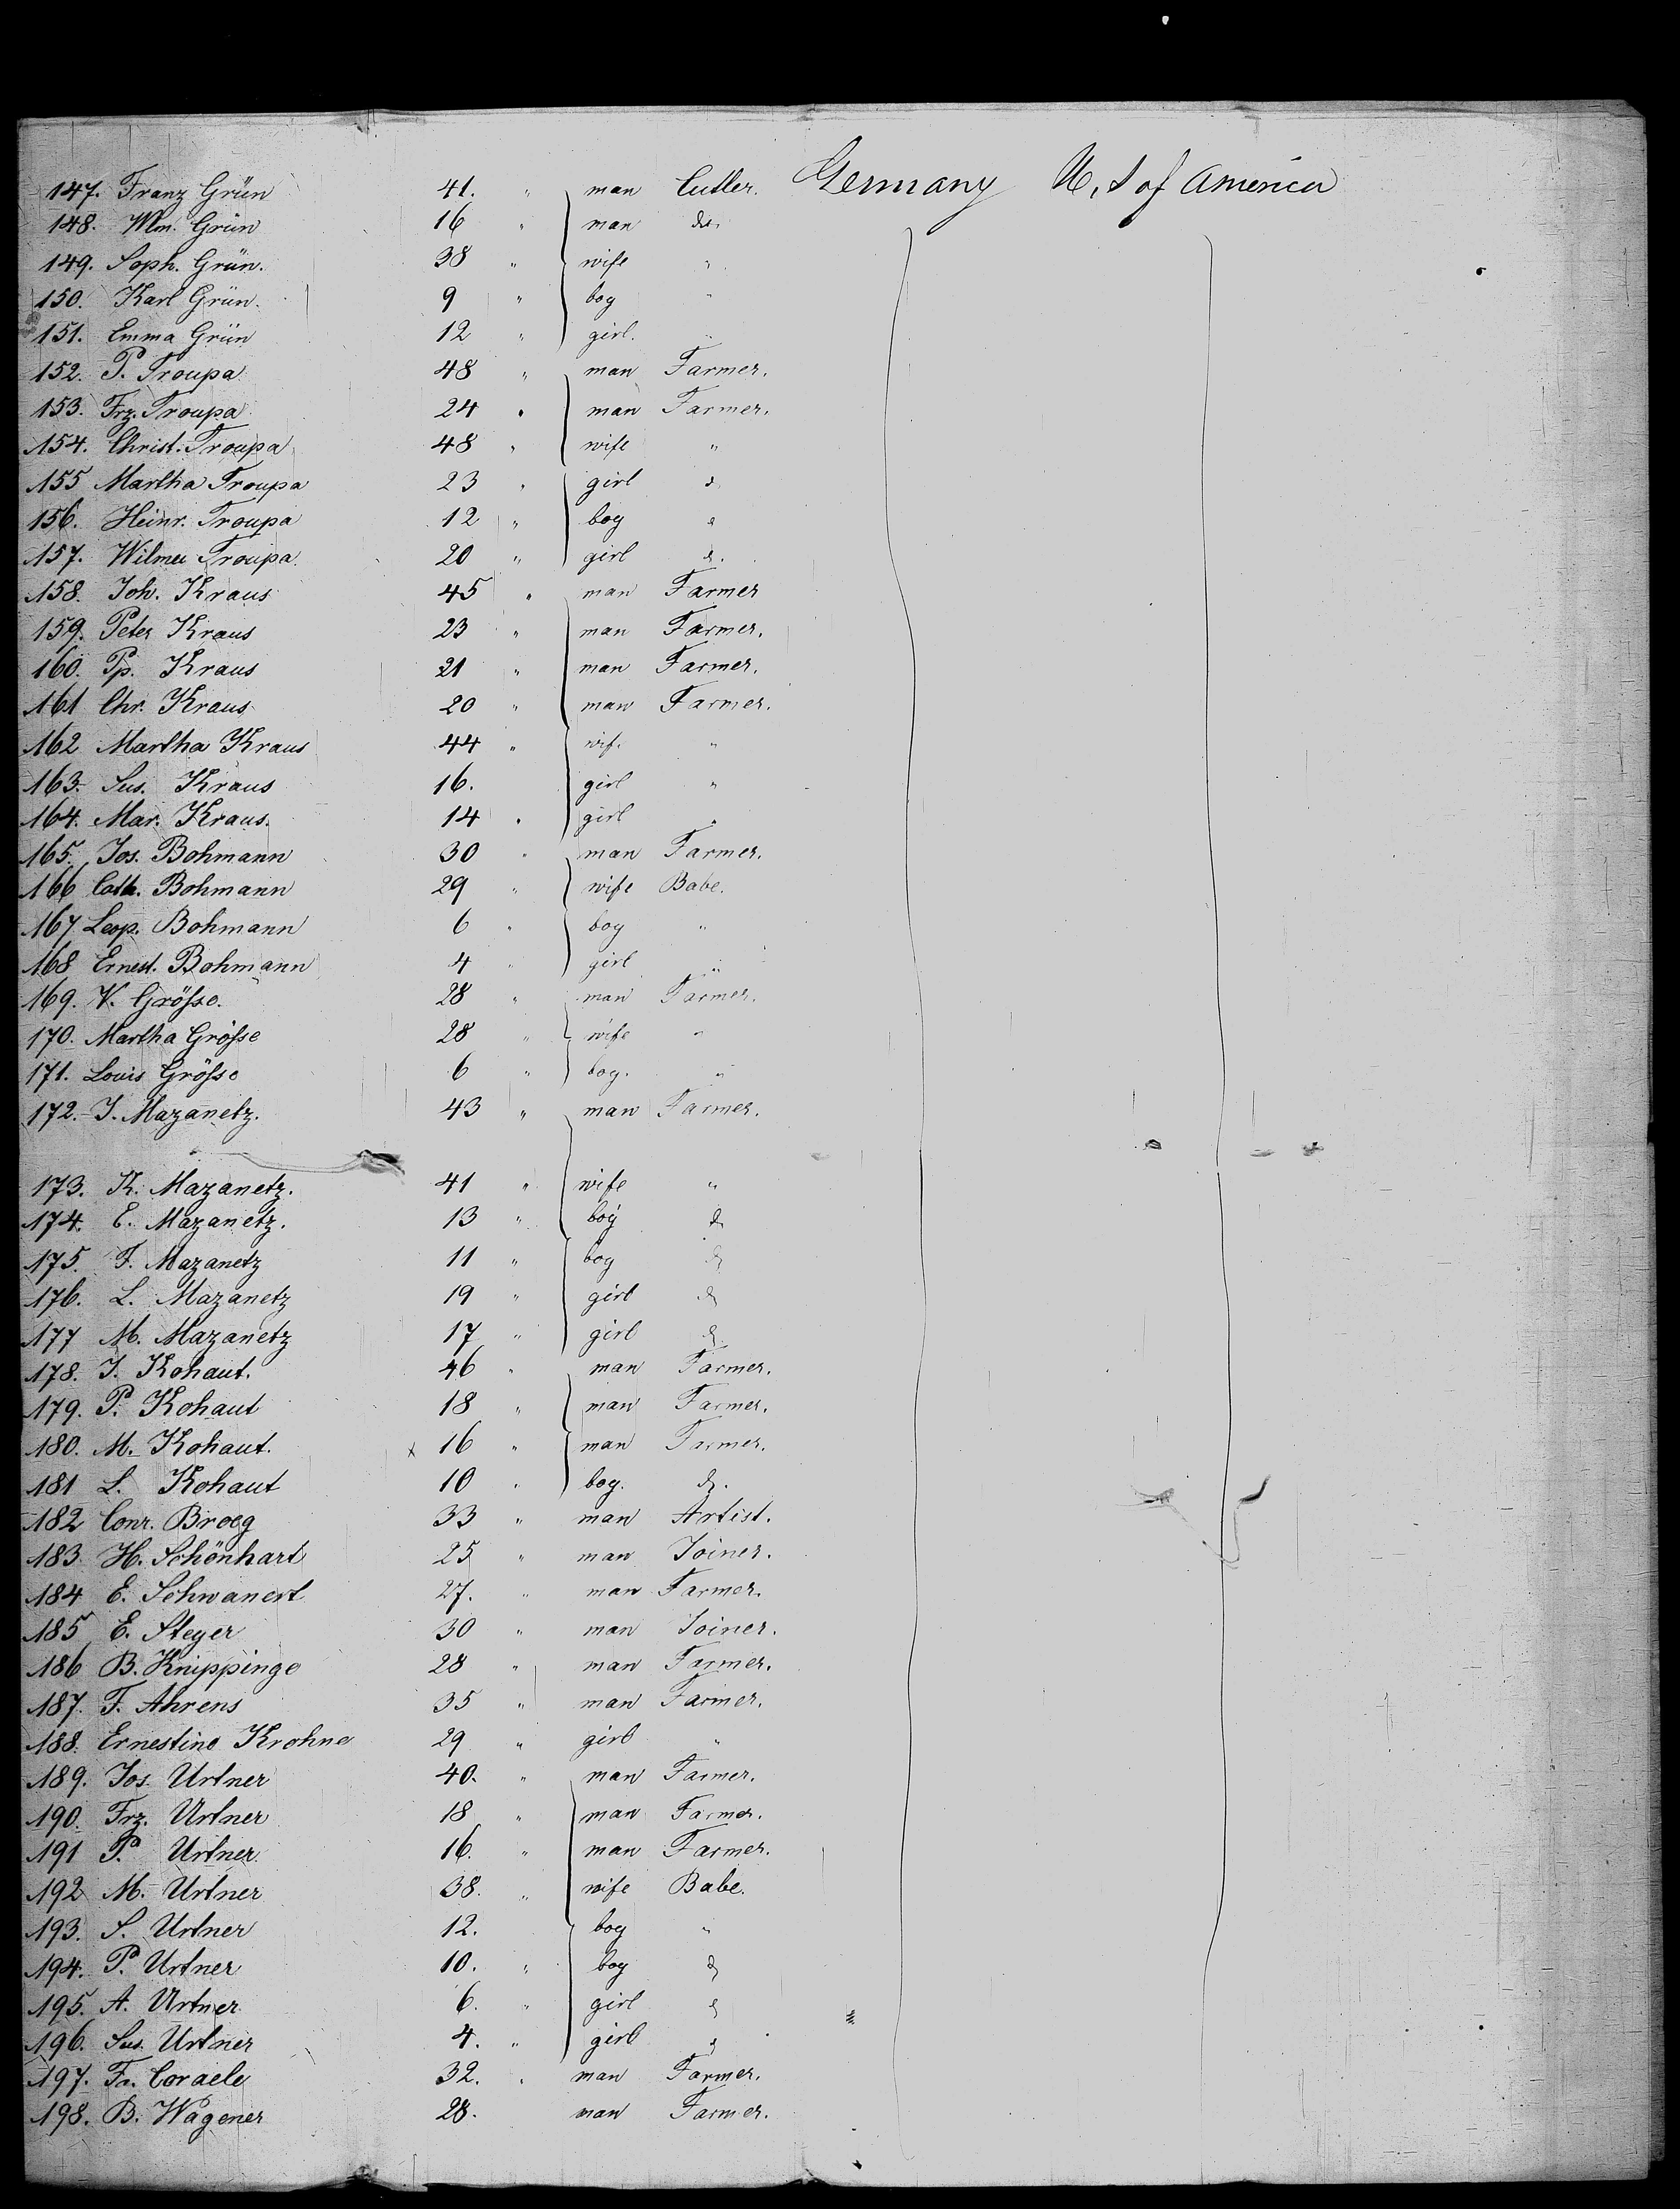 147. Franz Grün 41. " man Cutler. Germany U. S of America
148. Wm. Grün 16 " man do.
149. Soph. Grün. 38 " wife "
150. Karl Grün. 9 " boy "
151. Emma Grün 12 " girl. "
152. P. Troupa 48 " man Farmer.
153. Frz. Troupa 24 " man Farmer.
154. Christ. Troupa 48 " wife "
155 Martha Troupa 23 " girl "
156. Heinr. Troupa 12 " boy "
157. Troupa. 20 " girl "
158. Joh. Kraus 45 " man Farmer
159. Peter Kraus 23 " man Farmer.
160. Pp. Kraus 21 " man Farmer.
161 Chr. Kraus 20 " man Farmer.
162 Martha Kraus 44 " wif. "
163. Sus. Kraus 16. girl "
164. Mar. Kraus. 14 " girl "
165. Jos. Bohmann 30 " man Farmer.
166 Cath. Bohmann 29 " wife Babe.
167 Leop. Bohmann 6 " boy "
168 Ernest. Bohmann 4 " girl "
169. V. Grösse. 28 " man Farmer.
170. Martha Grösse 28 " wife "
171. Louis Grösse 6 " boy. "
172. J. Mazanetz. 43 " man Farmer.
173. K. Mazanetz. 41 " wife "
174. E. Mazanetz. 13 " boy do
175. F. Mazanetz 11 " boy do
176. L. Mazanetz 19 " girl do
177 M. Mazanetz 17 " girl do
178. J. Kohaut. 46 " man Farmer.
179. P. Kohaut 18 " man Farmer.
180. M. Kohaut. x 16 " man Farmer.
181 L. Kohaut 10 " boy. do.
182 Conr. Broeg 33 " man Artist.
183 H. Schönhart 25 " man Joiner.
184 E. Schwanert 27. " man Farmer.
185 E. Steyer 30 " man Joiner.
186 B. Knippinge 28 " man Farmer.
187. F. Ahrens 35 " man Farmer.
188. Ernestine Krohne 29 " girl "
189. Jos. Urtner 40. " man Farmer.
190. Frz. Urtner 18 " man Farmer.
191 P. Urtner 16. " man Farmer.
192 M. Urtner 38. " wife Babe.
193. S. Urtner 12. boy "
194. P. Urtner 10. " boy do
195. A. Urtner 6. " girl do
196. Sus. Urtner 4. " girl do
197. Fr. Coraele 32. " man Farmer.
198. B. Wagener 28. man Farmer.